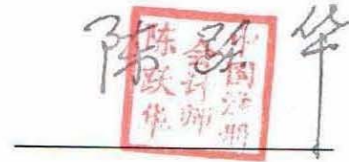 陈跃华
中国注册
会计师
陈跃华